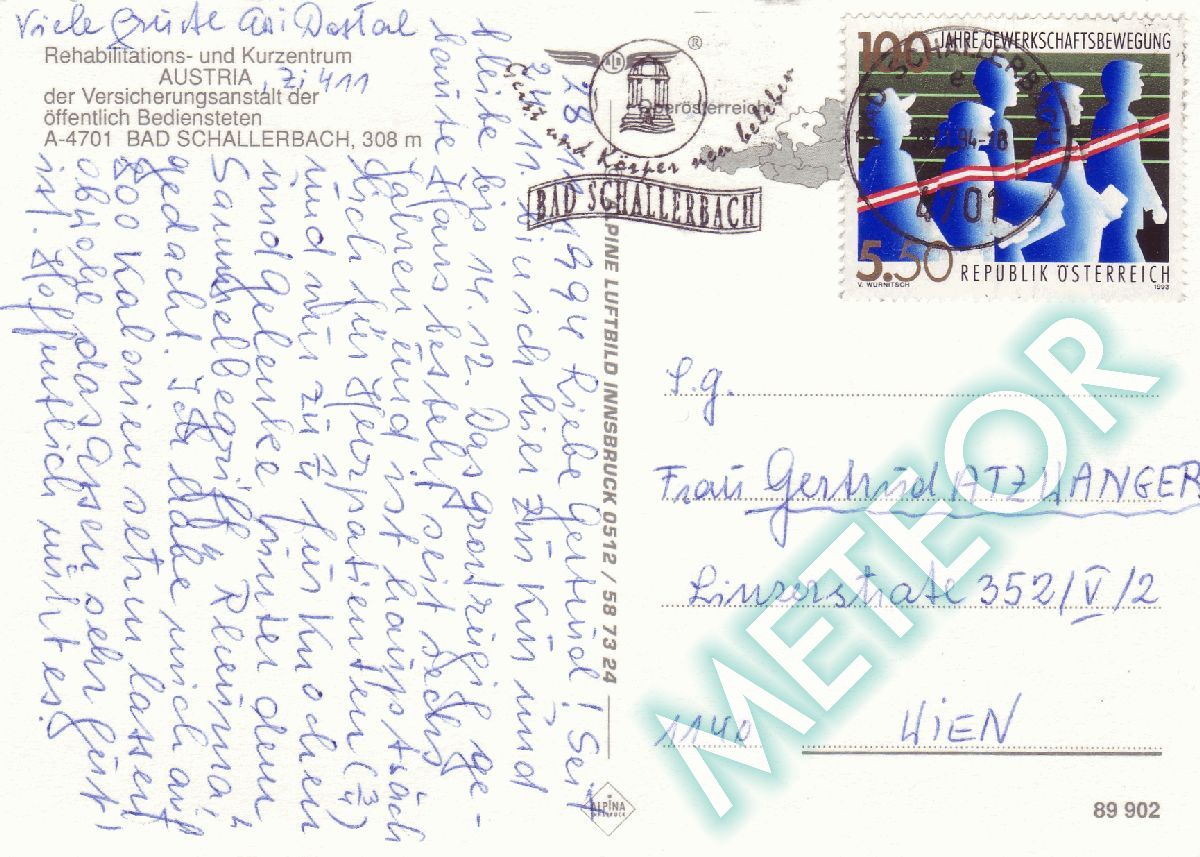 Viele Grüße
Rehabilitations- und Kurzentrum
AUSTRIA
, Zi 411
der Versicherungsanstalt der
öffentlich Bediensteten
A-4701 BAD SCHALLERBACH, 308 m
28. 11. 1994 Liebe Gertrud! Seit
24. 11. bin ich hier zur Kur und
bleibe bis 14. 12. Das großzügig ge-
baute Haus besteht seit sechs
Jahren und ist hauptsäch
lich für Herzpatienten (3/4)
und nur zu 1/4 für Knochen
und Gelenke unter dem
Sammelbegriff "Rheuma"
gedacht. Ich habe mich auf
800 Kalorien setzen lassen
obwohl das Essen sehr gut
ist. Hoffentlich nützt es!
ALPINE LUFTBILD INNSBRUCK 0512 / 58 73 24
ALPINA
INNSBRUCK
®
Oberösterreich
Geist und Körper neu beleben
BAD SCHALLERBACH
100 JAHRE GEWERKSCHAFTSBEWEGUNG
94-18
4701
5.50
REPUBLIK ÖSTERREICH
V. WURNITSCH
1993
S.g.
Frau Gertrud ATZWANGER
Linzerstraße 352/V/2
1140 WIEN
89 902
METEOR